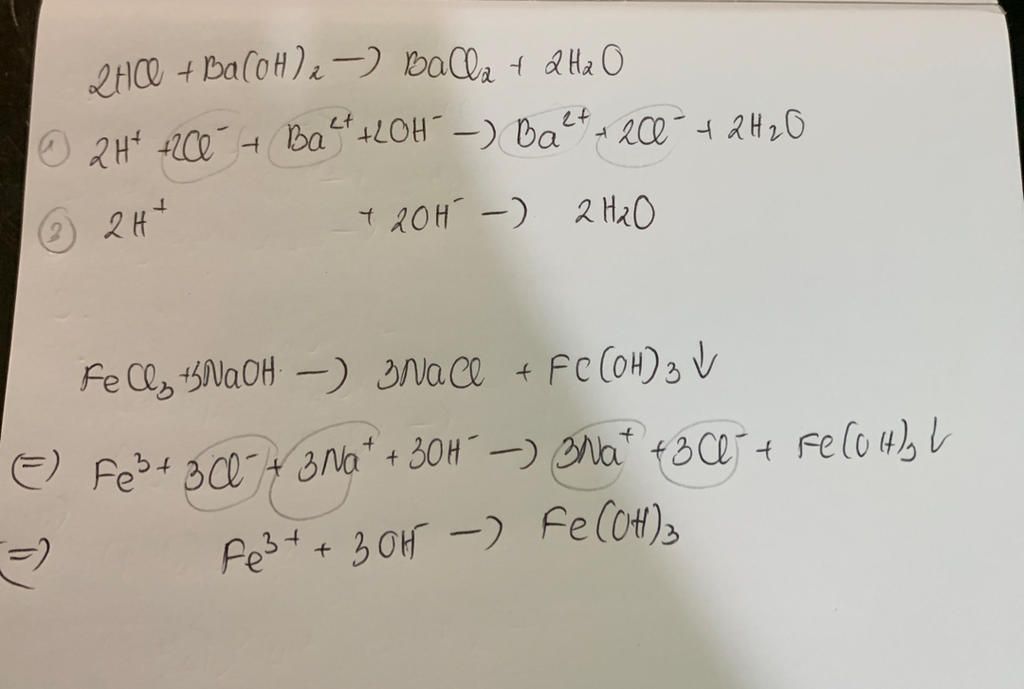 2HCl + Ba(OH)₂ → BaCl₂ + 2H₂O
① 2H⁺ + 2Cl⁻ + Ba²⁺ + 2OH⁻ → Ba²⁺ + 2Cl⁻ + 2H₂O
② 2H⁺ + 2OH⁻ → 2H₂O
FeCl₃ + 3NaOH → 3NaCl + FC(OH)₃ ↓
(=) Fe³⁺ 3Cl⁻ + 3Na⁺ + 3OH⁻ → 3Na⁺ + 3Cl⁻ + Fe(OH)₃ ↓
(=) Fe³⁺ + 3OH⁻ → Fe(OH)₃